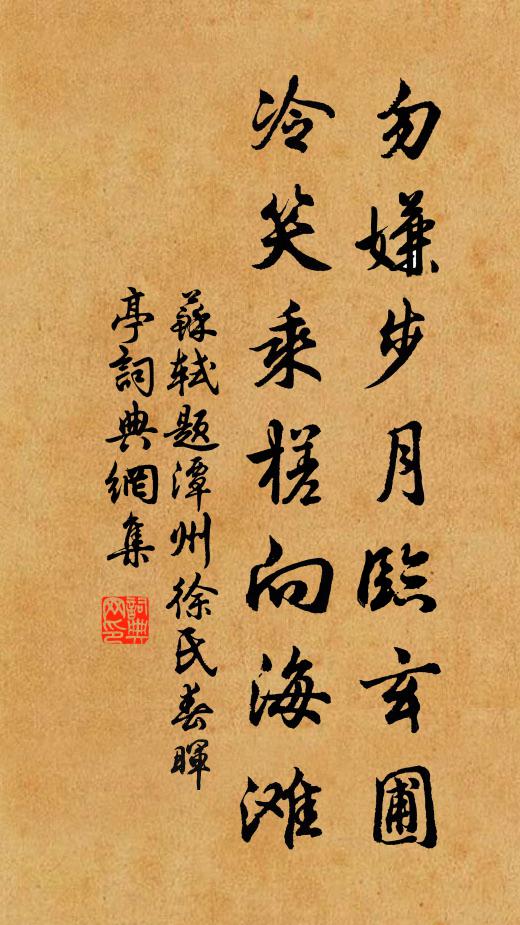 勿嫌步月臨玄圃
冷笑乘槎向海滩
蘇軾題潭州徐氏春暉
亭詞典網集
詞典網印